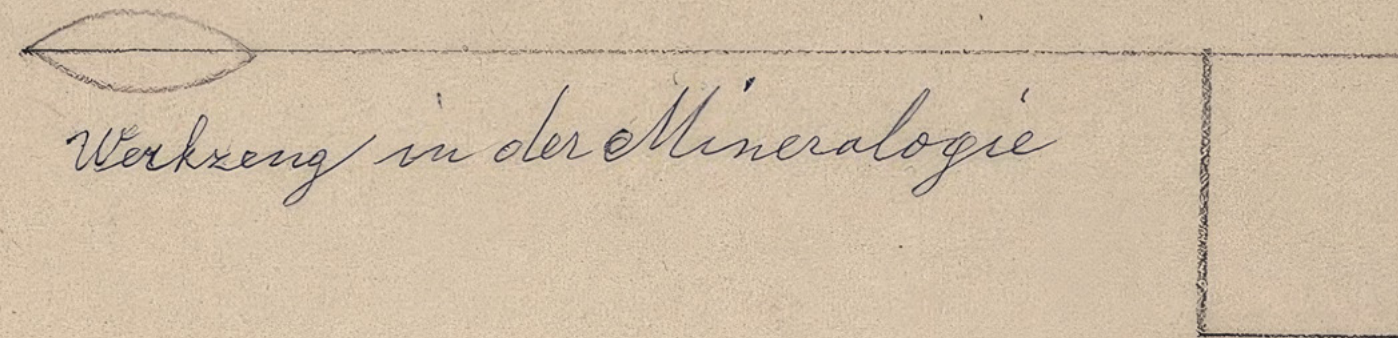 Werkzeug in der Mineralogie